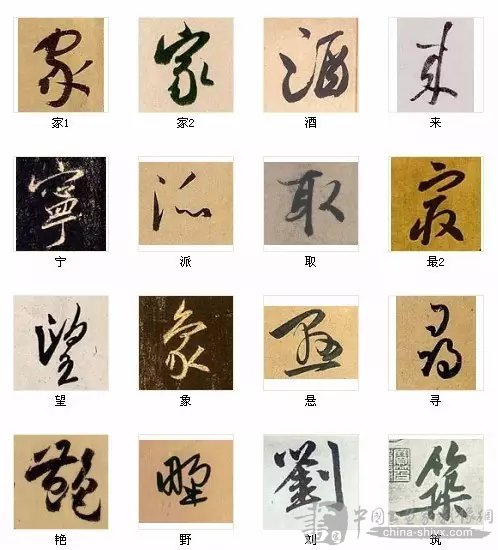 家1 家2 酒 来
宁 派 取 最2
望 象 悬 寻
艳 野 刘 筑
china-shiyx.com